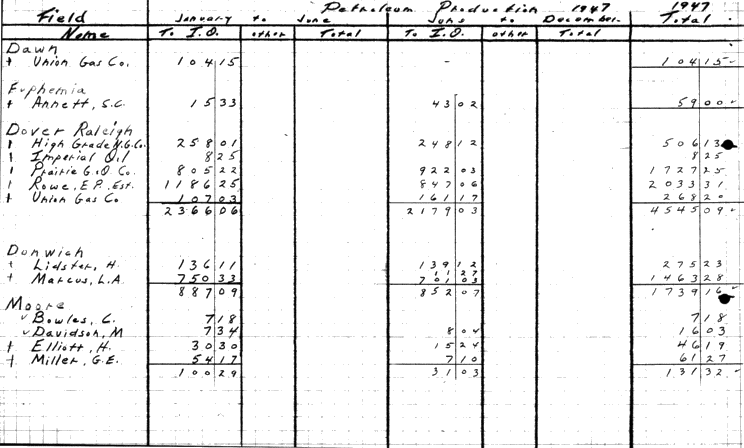 Petroleum Production 1947 1947
Field January to June June to December. Total
Name To I.O. other Total To I.O. other Total
Dawn
+ Union Gas Co. 104 15 - 104 15
Euphemia
+ Annett, S.C. 15 33 43 02 59 00
Dover Raleigh
High Grade N.G.Co. 258 01 248 12 506 13
Imperial Oil 8 25 8 25
Prairie G.O Co. 805 22 922 03 1727 25
Rowe, E.P. Est. 1186 25 847 06 2033 31
+ Union Gas Co 107 03 161 17 268 20
2366 06 2179 03 4545 09
Dunwich
+ Lidster, H. 136 11 139 12 275 23
11 27
+ Marcus, L.A. 750 33 701 03 1463 28
887 09 852 07 1739 16
Moore
Bowles, C. 7 18 7 18
Davidson, M 7 34 8 04 16 03
+ Elliott, H. 30 30 15 24 46 19
+ Miller, G.E. 54 17 7 10 61 27
100 29 31 03 131 32